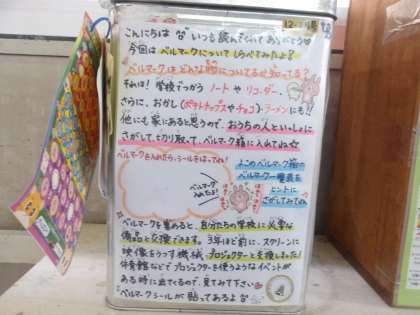 12-2月号
こんにちは いつも読んでくれてありがとう
今回は ベルマークについて しらべてみたよ!
ベルマークはどんな物についてるか知ってる?
それは! 学校でつかう ノート や リコーダー、
さらに、おかし(ポテトチップスやチョコ)ラーメンにも!!
他にも家にあると思うので、おうちの人といっしょに
さがして、切り取って、ベルマーク箱に入れてね☆
ベルマークを入れたら、シールをはってね!
ベルマーク
入れたよ!
よこのベルマーク箱の
ベルマーク一覧表を
ヒントに
さがしてみてね
ベルマークを集めると、自分たちの学校に必要な
備品と交換できます。3年ほど前に、スクリーンに
映像をうつす機械、プロジェクターと交換しました!
体育館などでプロジェクターを使うようなイベントが
ある時に出てくるので、見てみて下さい
ベルマークシールが貼ってあるよ